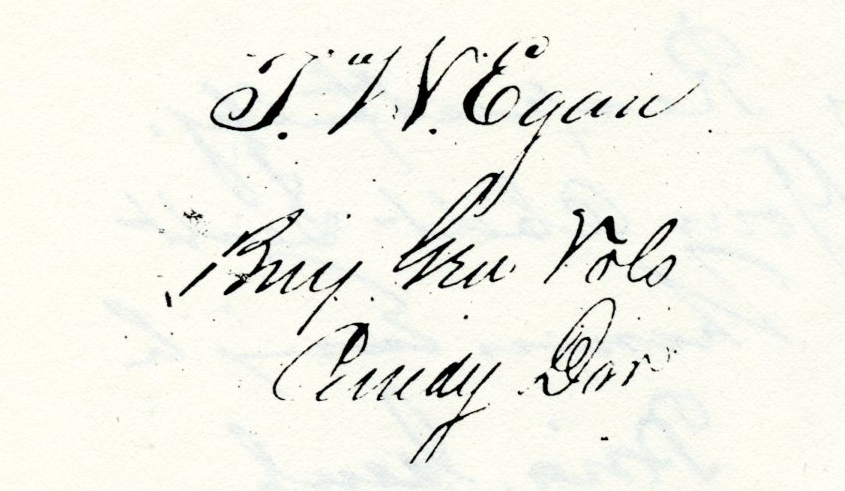 T. W. Egan
Brig. Gen. Vols
Comdg Div